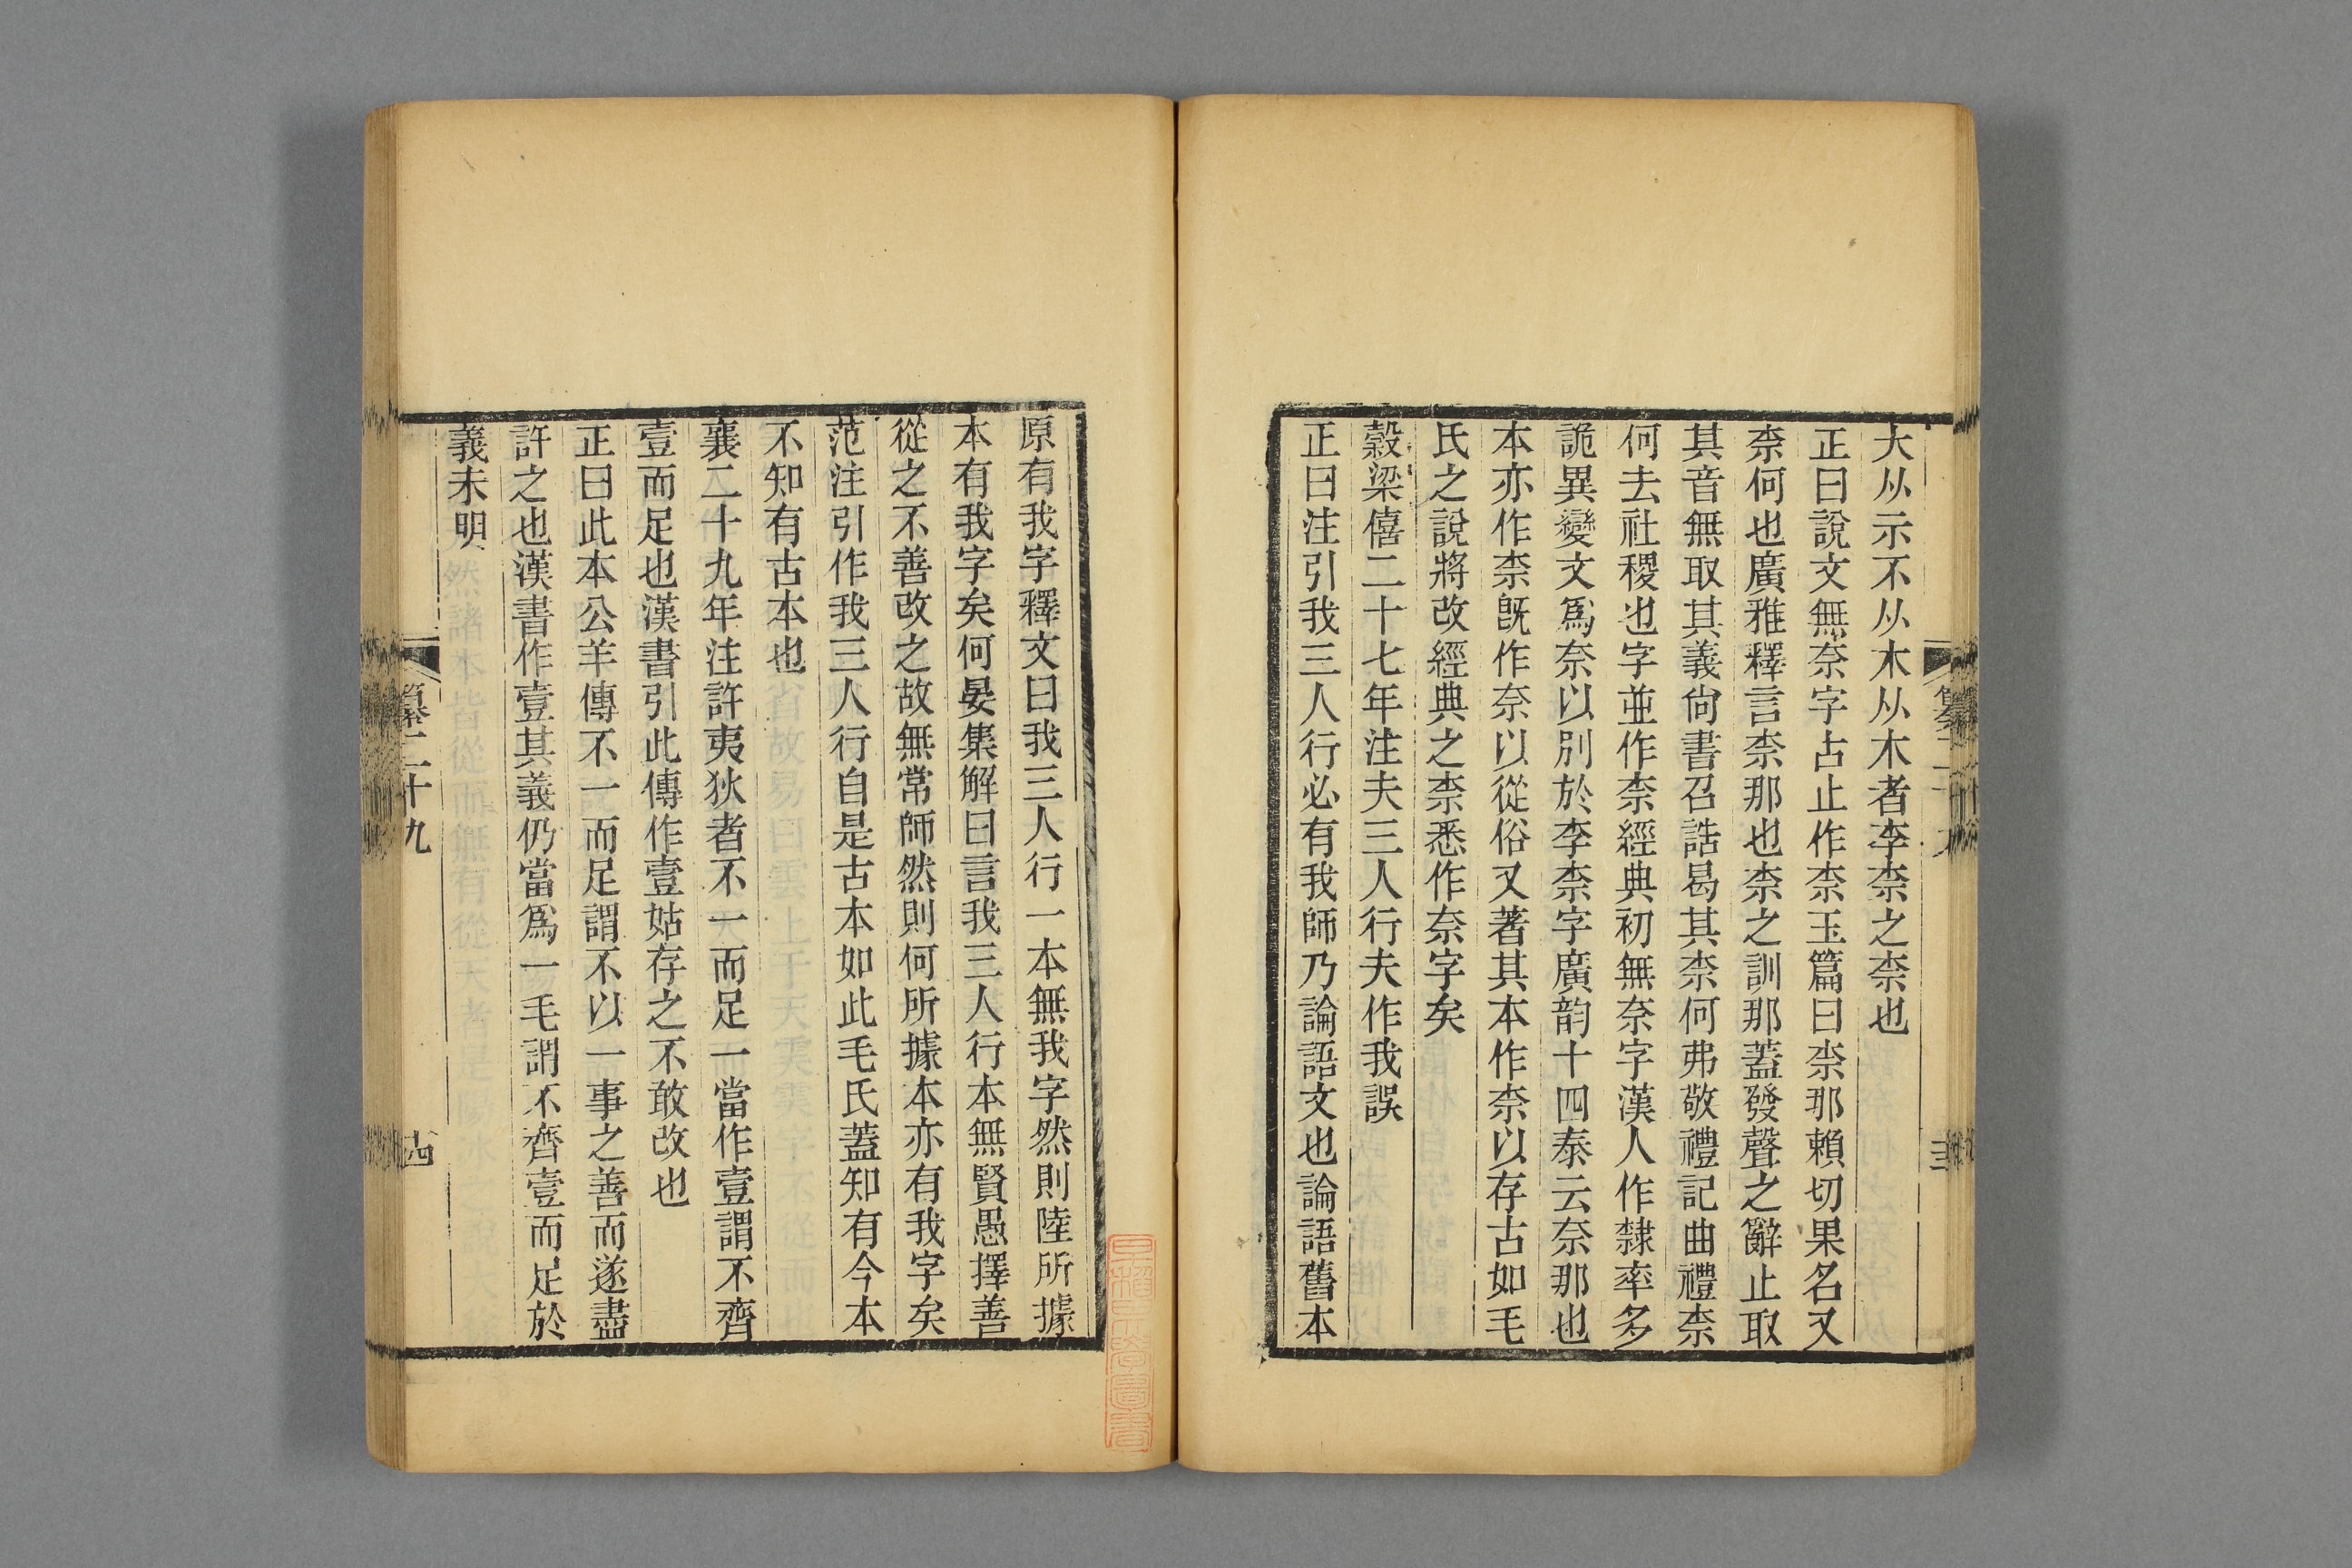 大从示不从木从木者李柰之柰也
正曰說文無奈字占止作柰玉篇曰柰那賴切果名又
柰何也廣雅釋言柰那也柰之訓那蓋發聲之辭止取
其音無取其義尙書召誥曷其柰何弗敬禮記曲禮柰
何去社稷也字並作柰經典初無奈字漢人作隸率多
詭異變文爲奈以別於李柰字廣韵十四泰云奈那也
本亦作柰旣作奈以從俗又著其本作柰以存古如毛
氏之說將改經典之柰悉作奈字矣
穀梁僖二十七年注夫三人行夫作我誤
正曰注引我三人行必有我師乃論語文也論語舊本
原有我字釋文曰我三人行一本無我字然則陸所據
本有我字矣何晏集解曰言我三人行本無賢愚擇善
從之不善改之故無常師然則何所據本亦有我字矣
范注引作我三人行自是古本如此毛氏蓋知有今本
不知有古本也
襄二十九年注許夷狄者不一而足一當作壹謂不齊
壹而足也漢書引此傳作壹姑存之不敢改也
正曰此本公羊傳不一而足謂不以一事之善而遂盡
許之也漢書作壹其義仍當爲一毛謂不齊壹而足於
義未明
二十九